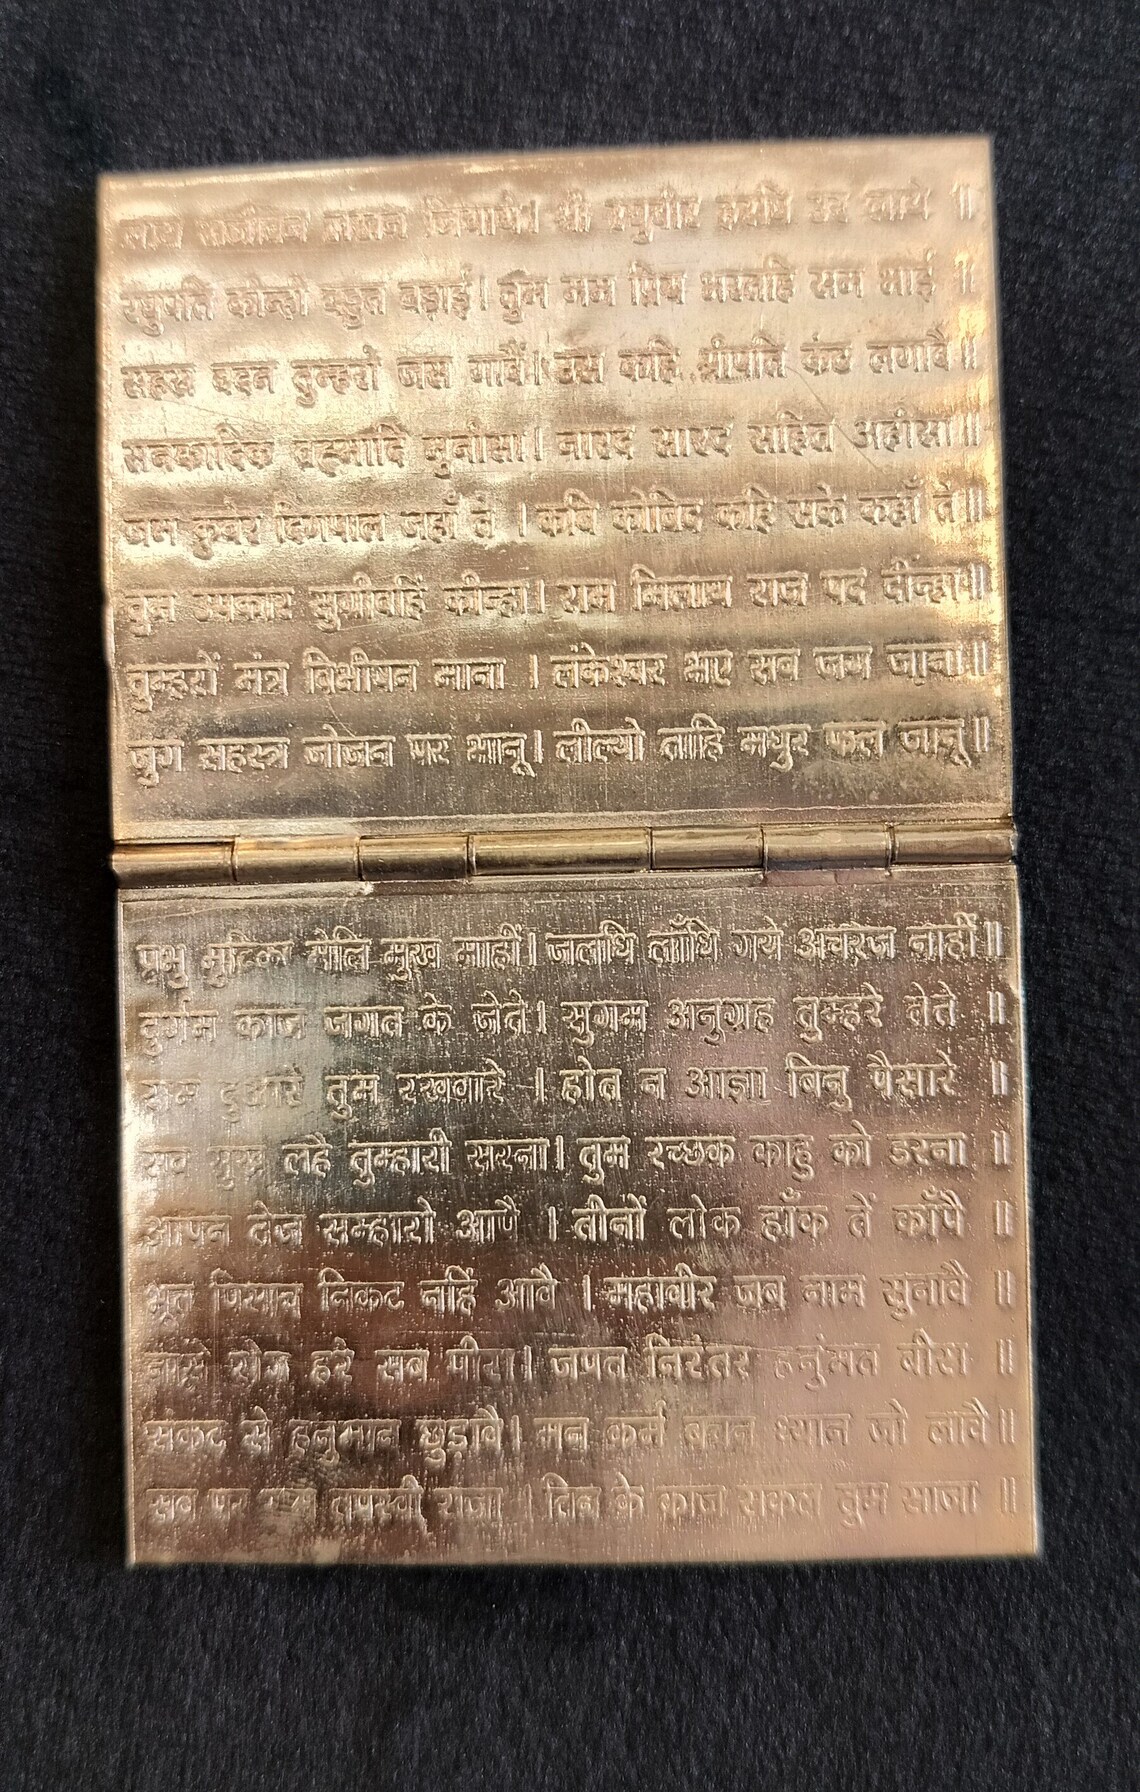 लाय सजीवन लखन जियाये। श्री रघुवीर हरषि उर लाये ॥
रघुपति कीन्हीं बहुत बड़ाई। तुम मम प्रिय भरतहि सम भाई ॥
सहस बदन तुम्हरो जस गावैं। अस कहि श्रीपति कंठ लगावै ॥
सनकादिक ब्रह्मादि मुनीसा। नारद सारद सहित अहीसा॥
जम कुबेर दिगपाल जहाँ ते । कवि कोविद कहि सके कहाँ ते॥
तुम उपकार सुग्रीवहिं कीन्हा। राम मिलाय राज पद दीन्हा॥
तुम्हरों मंत्र विभीषन माना । लंकेश्वर भए सब जग जाना॥
जुग सहस्त्र जोजन पर भानू। लील्यो ताहि मधुर फल जानू॥
प्रभु मुद्रिका मेलि मुख माहीं। जलधि लाँधि गये अचरज नाहीं॥
दुर्गम काज जगत के जेते। सुगम अनुग्रह तुम्हरे तेते ॥
राम दुआरे तुम रखवारे । होत न आज्ञा बिनु पैसारे ॥
सब सुख लहै तुम्हारी सरना। तुम रच्छक काहु को डरना ॥
आपन तेज सम्हारो आपै । तीनों लोक हाँक तें काँपै ॥
भूत पिसाच निकट नहिं आवै । महावीर जब नाम सुनावै ॥
नासे रोग हरे सब पीरा। जपत निरंतर हनुंमत बीरा ॥
संकट से हनुमान छुड़ावै। मन कर्म बचन ध्यान जो लावै॥
सब पर राम तपस्वी राजा । तिन के काज सकल तुम साजा ॥